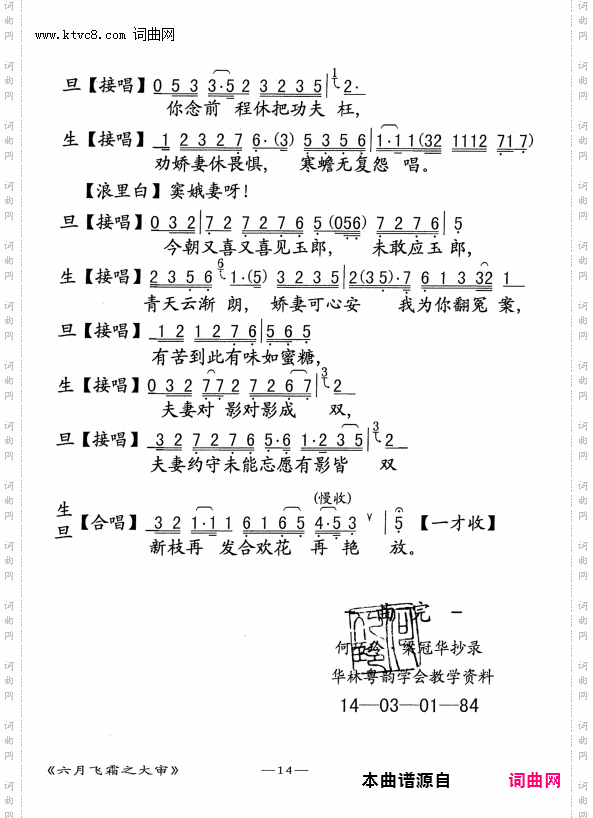 www.ktvc8.com 词曲网
旦【接唱】0 5 3 3·5 2 3 2 3 5 | 1 2·
你念前 程休把功夫 枉，
生【接唱】1 2 3 2 7 6·(3) 5 3 5 6 | 1·1 1(32 1112 71 7)
劝娇妻休畏惧， 寒蟾无复怨 唱。
【浪里白】窦娥妻呀！
旦【接唱】0 3 2 | 7 2 7 2 7 6 5 (056) 7 2 7 6 | 5
今朝又喜又喜见玉郎， 未敢应玉 郎，
生【接唱】2 3 5 6 6 1·(5) 3 2 3 5 | 2(3 5)·7 6 1 3 32 1
青天云渐 朗， 娇妻可心安 我为你翻冤 案，
旦【接唱】1 2 1 2 7 6 | 5 6 5
有苦到此有味如蜜糖，
生【接唱】0 3 2 7 7 2 7 2 6 7 | 3 2
夫妻对 影对影成 双，
旦【接唱】3 2 7 2 7 6 5·6 1·2 3 5 | 3 2
夫妻约守未能忘愿有影皆 双
(慢收)
生旦【合唱】3 2 1·1 1 6 1 6 5 4·5 3 ∨ | 5 【一才收】
新枝再 发合欢花 再 艳 放。
一 曲 完 一
梁冠华抄录
华林粤韵学会教学资料
14—03—01—84
《六月飞霜之大审》 —14— 本曲谱源自 词曲网